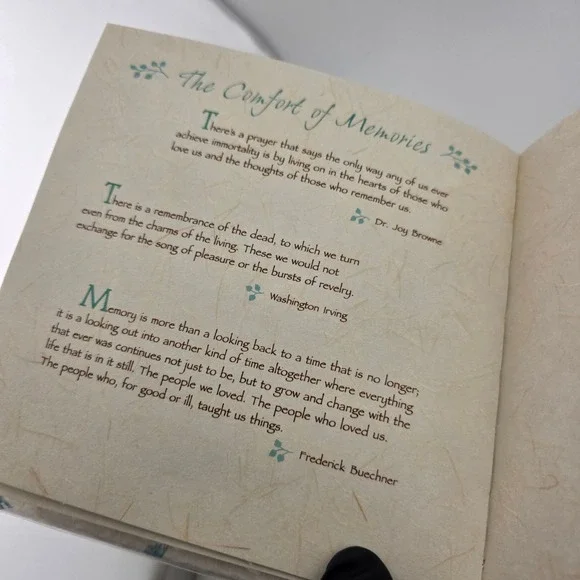 The Comfort of Memories
There's a prayer that says the only way any of us ever
achieve immortality is by living on in the hearts of those who
love us and the thoughts of those who remember us.
Dr. Joy Browne
There is a remembrance of the dead, to which we turn
even from the charms of the living. These we would not
exchange for the song of pleasure or the bursts of revelry.
Washington Irving
Memory is more than a looking back to a time that is no longer;
it is a looking out into another kind of time altogether where everything
that ever was continues not just to be, but to grow and change with the
life that is in it still. The people we loved. The people who loved us.
The people who, for good or ill, taught us things.
Frederick Buechner